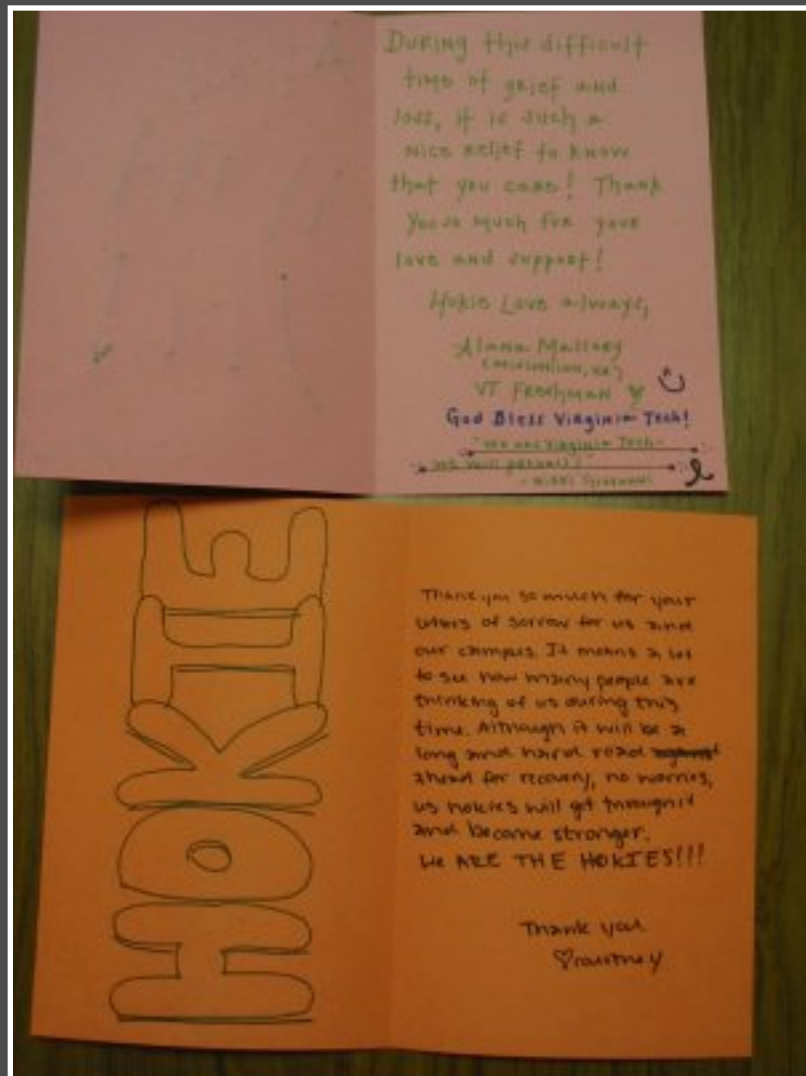 During this difficult
time of grief and
loss, it is such a
nice relief to know
that you care! Thank
you so much for your
love and support!
Hokie Love always,
Alana
VT Freshman
God Bless Virginia Tech!
"We are Virginia Tech-
we will prevail!"
- Nikki Giovanni
HOKIE
Thank you so much for your
letters of sorrow for us and
our campus. It means a lot
to see how many people are
thinking of us during this
time. Although it will be a
long and hard road
ahead for recovery, no worries,
us hokies will get through it
and become stronger.
We ARE THE HOKIES!!!
Thank you
Courtney